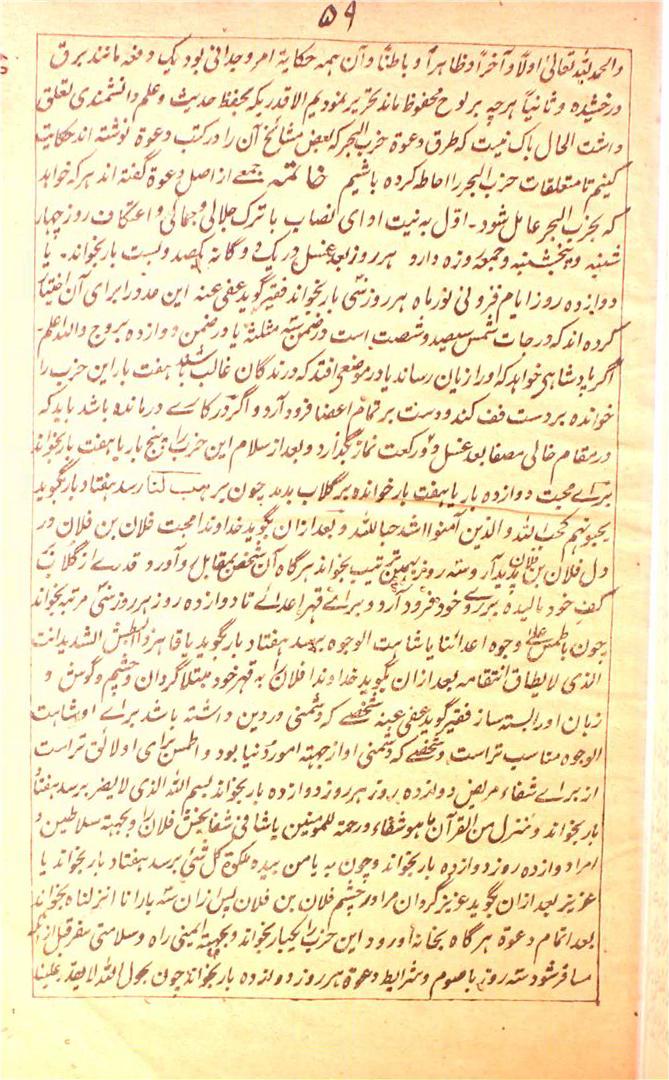 ۵۹
والحمد لله تعالیٰ اولاً و آخراً و ظاهراً و باطناً و آن همه حکایة امر وجدانی بود یک دفعه مانند برق
درخشده و ثانیاً هرچه بر لوح محفوظ ماند تحریر نمودیم الا قدریکه بحفظ حدیث و علم دانشمندی تعلق
داشت الحال باک نیست که طرق دعوة حزب البحر که بعض مشائخ آن را در کتب دعوة نوشته اند حکایت
کنیم تا متعلقات حزب البحر را احاطه کرده باشیم خاتمه جمعے از اصل دعوة گفته اند هر که خواهد
که بحزب البحر عامل شود۔ اول به نیت ادای نصاب با ترک جلالی و جمالی و اعتکاف روز چهار
شنبه و پنجشنبه و جمعه روزه دارد هر روز بعد غسل در یک دوگانه یکصد و بست بار بخواند۔ یا
دوازده روز ایام فزونی نور ماه هر روز سی بار بخواند فقیر گوید عفی عنه این عدد را برای آن اختیار
کرده اند که درجات شمس سیصد و شصت است در ضمن سه مثلثه یا در ضمن دوازده بروج والله اعلم۔
اگر پادشاهی خواهد که او را زیان رساند یا در موضعی افتد که درندگان غالب باشند هفت بار این حزب را
خوانده بر دست قف کند و دست بر تمام اعضا فرود آرد و اگر در کارے درمانده باشد باید که
در مقام خالی مصفا بعد غسل دو رکعت نماز بگذارد و بعد از سلام این حزب را پنج بار یا هفت بار بخواند
براے محبت دوازده بار یا هفت بار خوانده بر گلاب بدمد چون بر هب لنا رسد هفتاد بار بگوید
یحبونهم کحب الله والذین آمنوا اشد حبا لله و بعد ازان بگوید خداوندا محبت فلان بن فلان در
دل فلان بن فلان پدید آر و سه روز بهمین ترتیب بخواند هرگاه آن شخص بمقابل او آورد قدرے از گلاب
کف خود مالیده بر روے خود فرود آرد و براے قهر اعداے تا دوازده روز هر روز سی مرتبه بخواند
چون باطمس علیٰ وجوه اعدائنا یا شاهت الوجوه برسد هفتاد بار بگوید یا قاهر ذا البطش الشدید انت
الذی لا یطاق انتقامه بعد ازان بگوید خداوندا فلان را به قهر خود مبتلا گردان و چشم و گوش و
زبان او را بسته ساز فقیر گوید عفی عنه شخصے که دشمنی در دین داشته باشد براے او شاهت
الوجوه مناسب تر است و شخصے که دشمنی او از جهته امور دنیا بود واطمس براے او لائق تر است
از براے شفاء مریض دوازده روز هر روز دوازده بار بخواند بسم الله الذی لا یضر برسد هفتاد
بار بخواند و ننزل من القرآن ما هو شفاء و رحمة للمومنین یا شافی شفا بخش فلان را و بجهته سلاطین و
امرا دوازده روز دوازده بار بخواند و چون به یا من بیده ملکوة کل شئی برسد هفتاد بار بخواند یا
عزیز بعد ازان بگوید عزیز گردان مرا در چشم فلان بن فلان پس ازان سه بار انا انزلناه بخواند
بعد اتمام دعوة هرگاه بخانه او رود این حزب را یکبار بخواند و بجهته ایمنی راه و سلامتی سفر قبل از آنکه
مسافر شود سه روز باصوم و شرایط دعوة هر روز دوازده بار بخواند چون بحول الله لا یقدر علینا